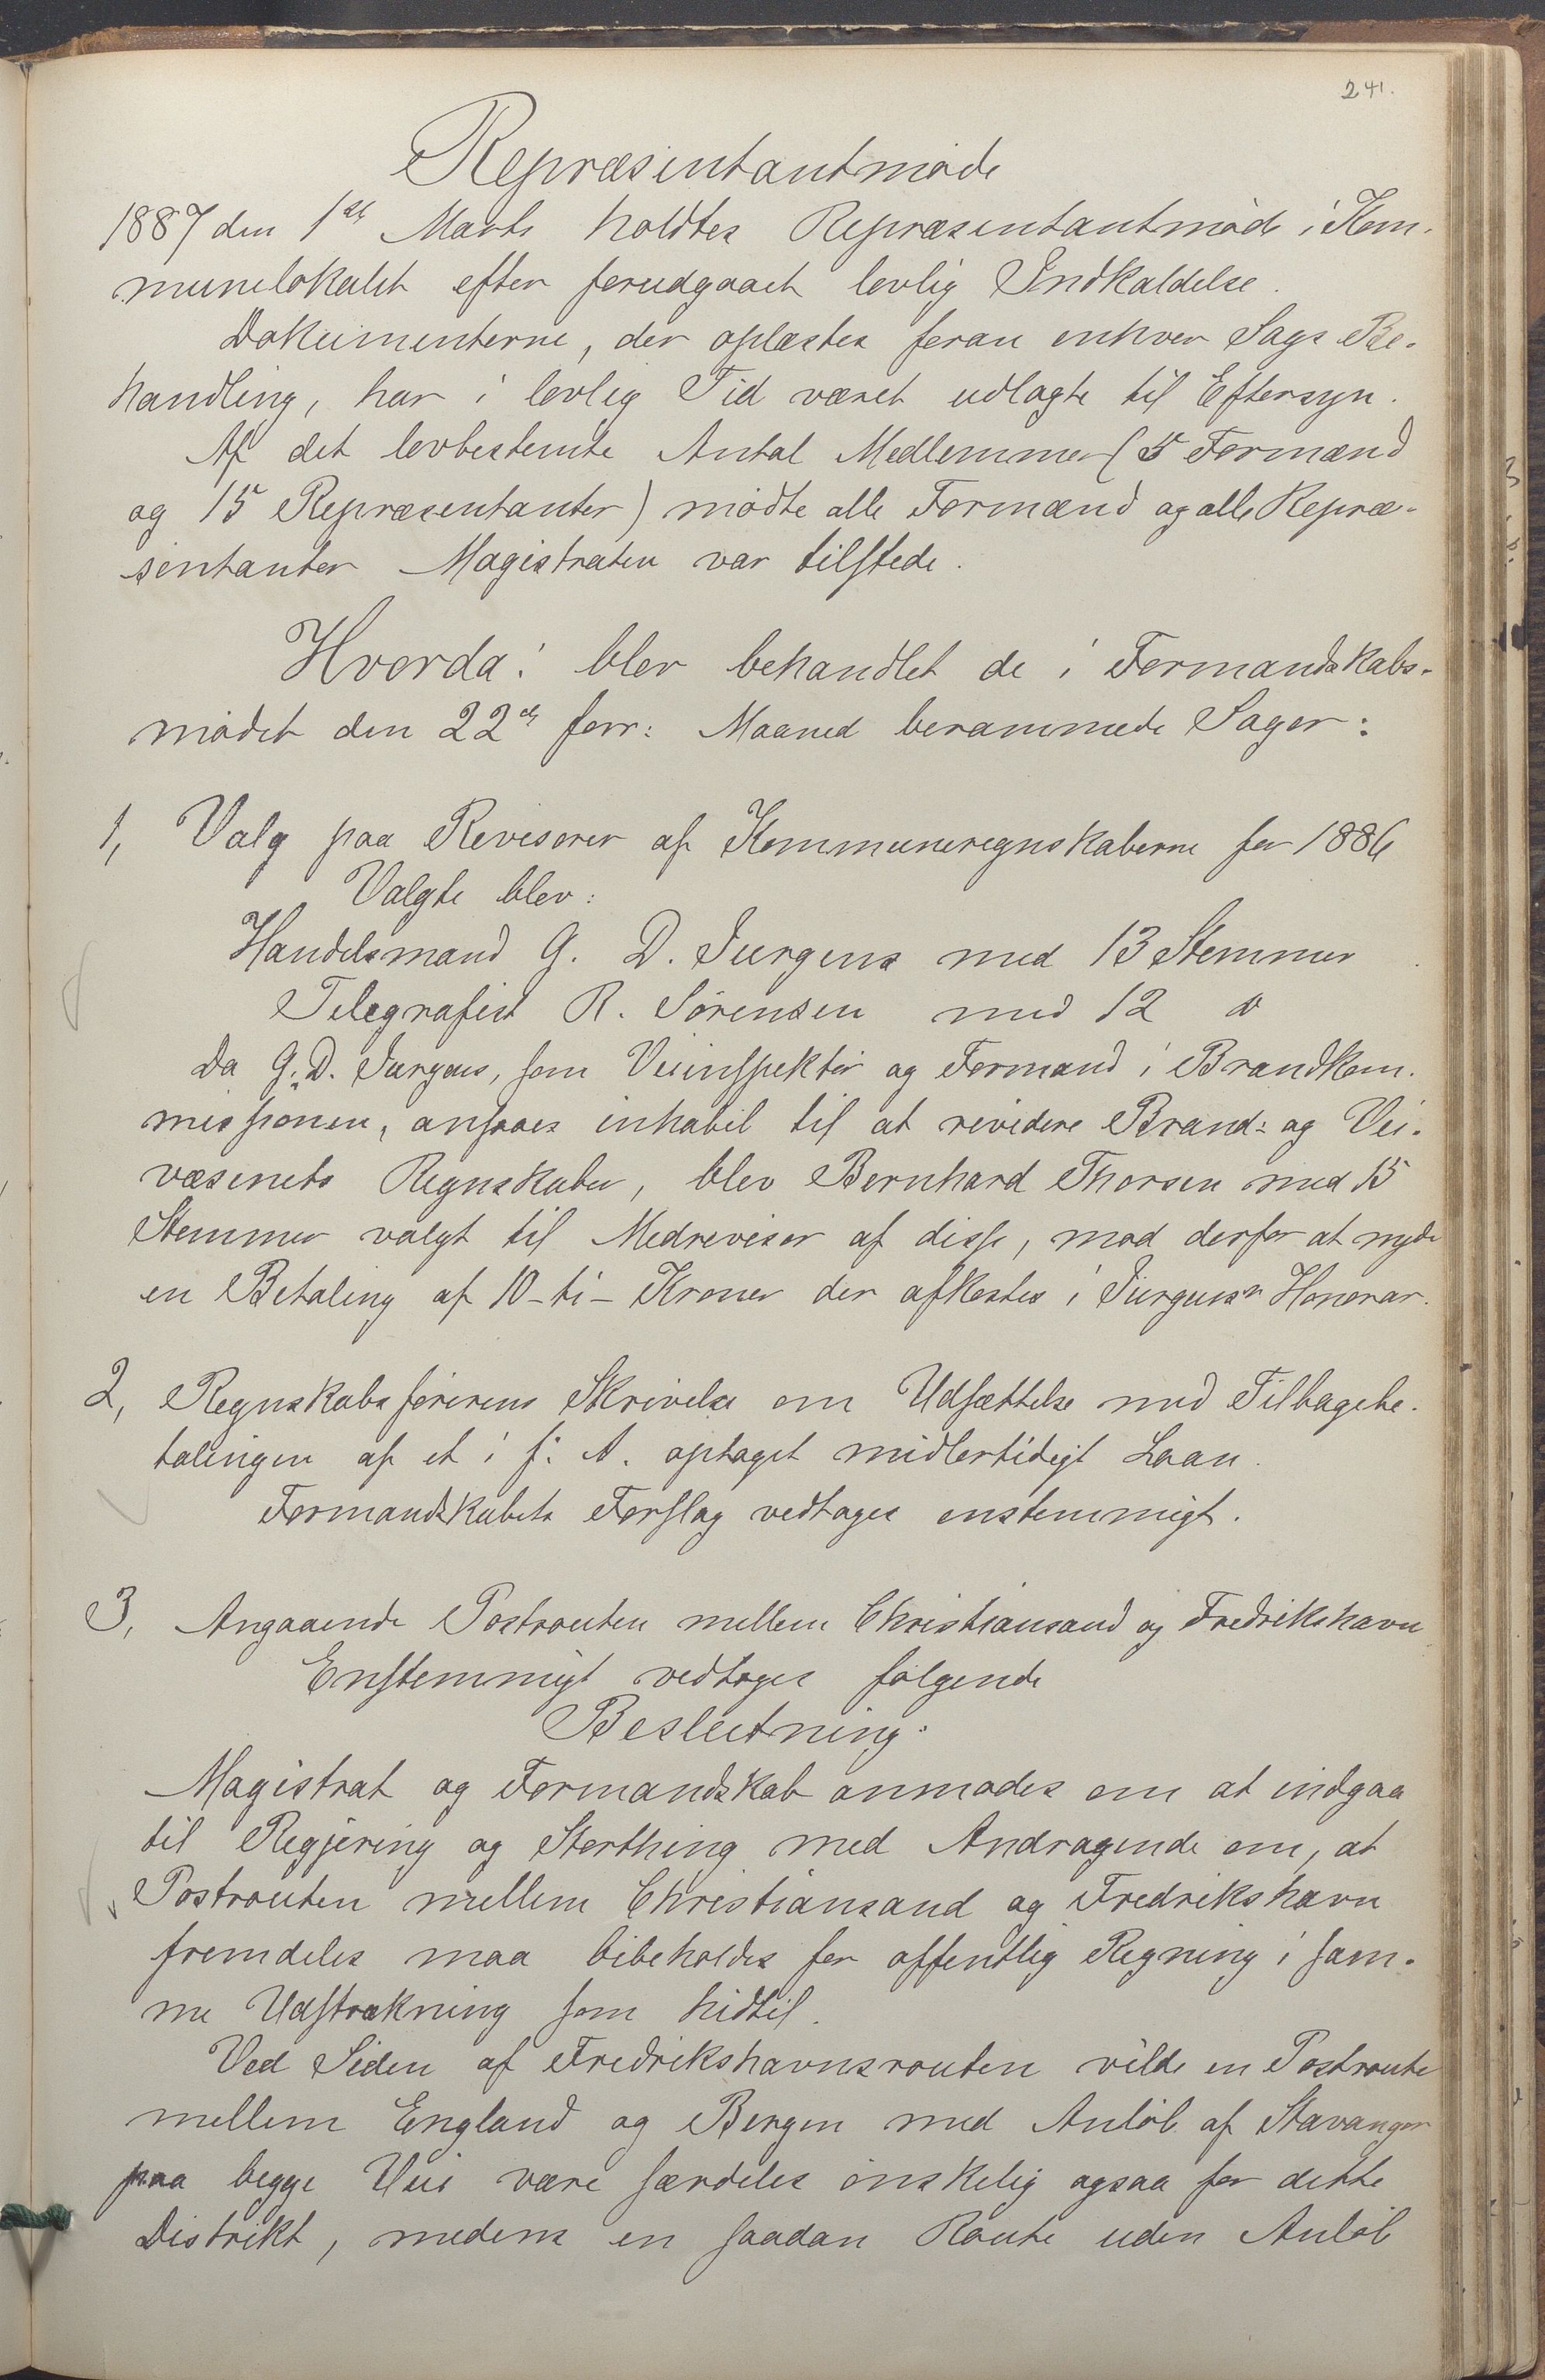 241.
Repræsentantmøde
1887 den 1ste Marts holdtes Repræsentantmøde i Kom-
munelokalet efter forudgaaet lovlig Indkaldelse.
Dokumenterne, der oplæstes foran enhver Sags Be-
handling, har i lovlig Tid været udlagte til Eftersyn.
Af det lovbestemte Antal Medlemmer (5 Formænd
og 15 Repræsentanter) mødte alle Formænd og alle Repræ-
sentanter Magistraten var tilstede.
Hvorda: blev behandlet de i Formandskabs-
mødet den 22de forr: Maaned berammede Sager:
1, Valg paa Revisorer af Kommuneregnskaberne for 1886
Valgte blev:
Handelsmand G. D. Jurgens med 13 Stemmer
Telegrafist R. Sørensen med 12 do
Da G. D. Jurgens, som Veiinspektør og Formand i Brandkom-
missionen, ansaaes inhabil til at revidere Brand- og Vei-
væsenets Regnskaber, blev Bernhard Thorsen med 15
Stemmer valgt til Medrevisor af disse, mod derfor at nyde
en Betaling af 10 - ti - Kroner der afkortes i Jurgens's Honorar.
2, Regnskabsførerens Skrivelse om Udsættelse med Tilbagebe-
talingen af et i f: A. optaget midlertidigt Laan.
Formandskabets Forslag vedtages enstemmigt.
3, Angaaende Postrouten mellem Christiansand og Fredrikshavn
Enstemmigt vedtoges følgende
Beslutning:
Magistrat og Formandskab anmodes om at indgaa
til Regjering og Storthing med Andragende om, at
Postrouten mellem Christiansand og Fredrikshavn
fremdeles maa bibeholdes for offentlig Regning i sam-
me Udstrækning som hidtil.
Ved Siden af Fredrikshavnsrouten vilde en Postroute
mellem England og Bergen med Anløb af Stavanger
paa begge Veie være særdeles ønskelig ogsaa for dette
Distrikt, medens en saadan Route uden Anløb